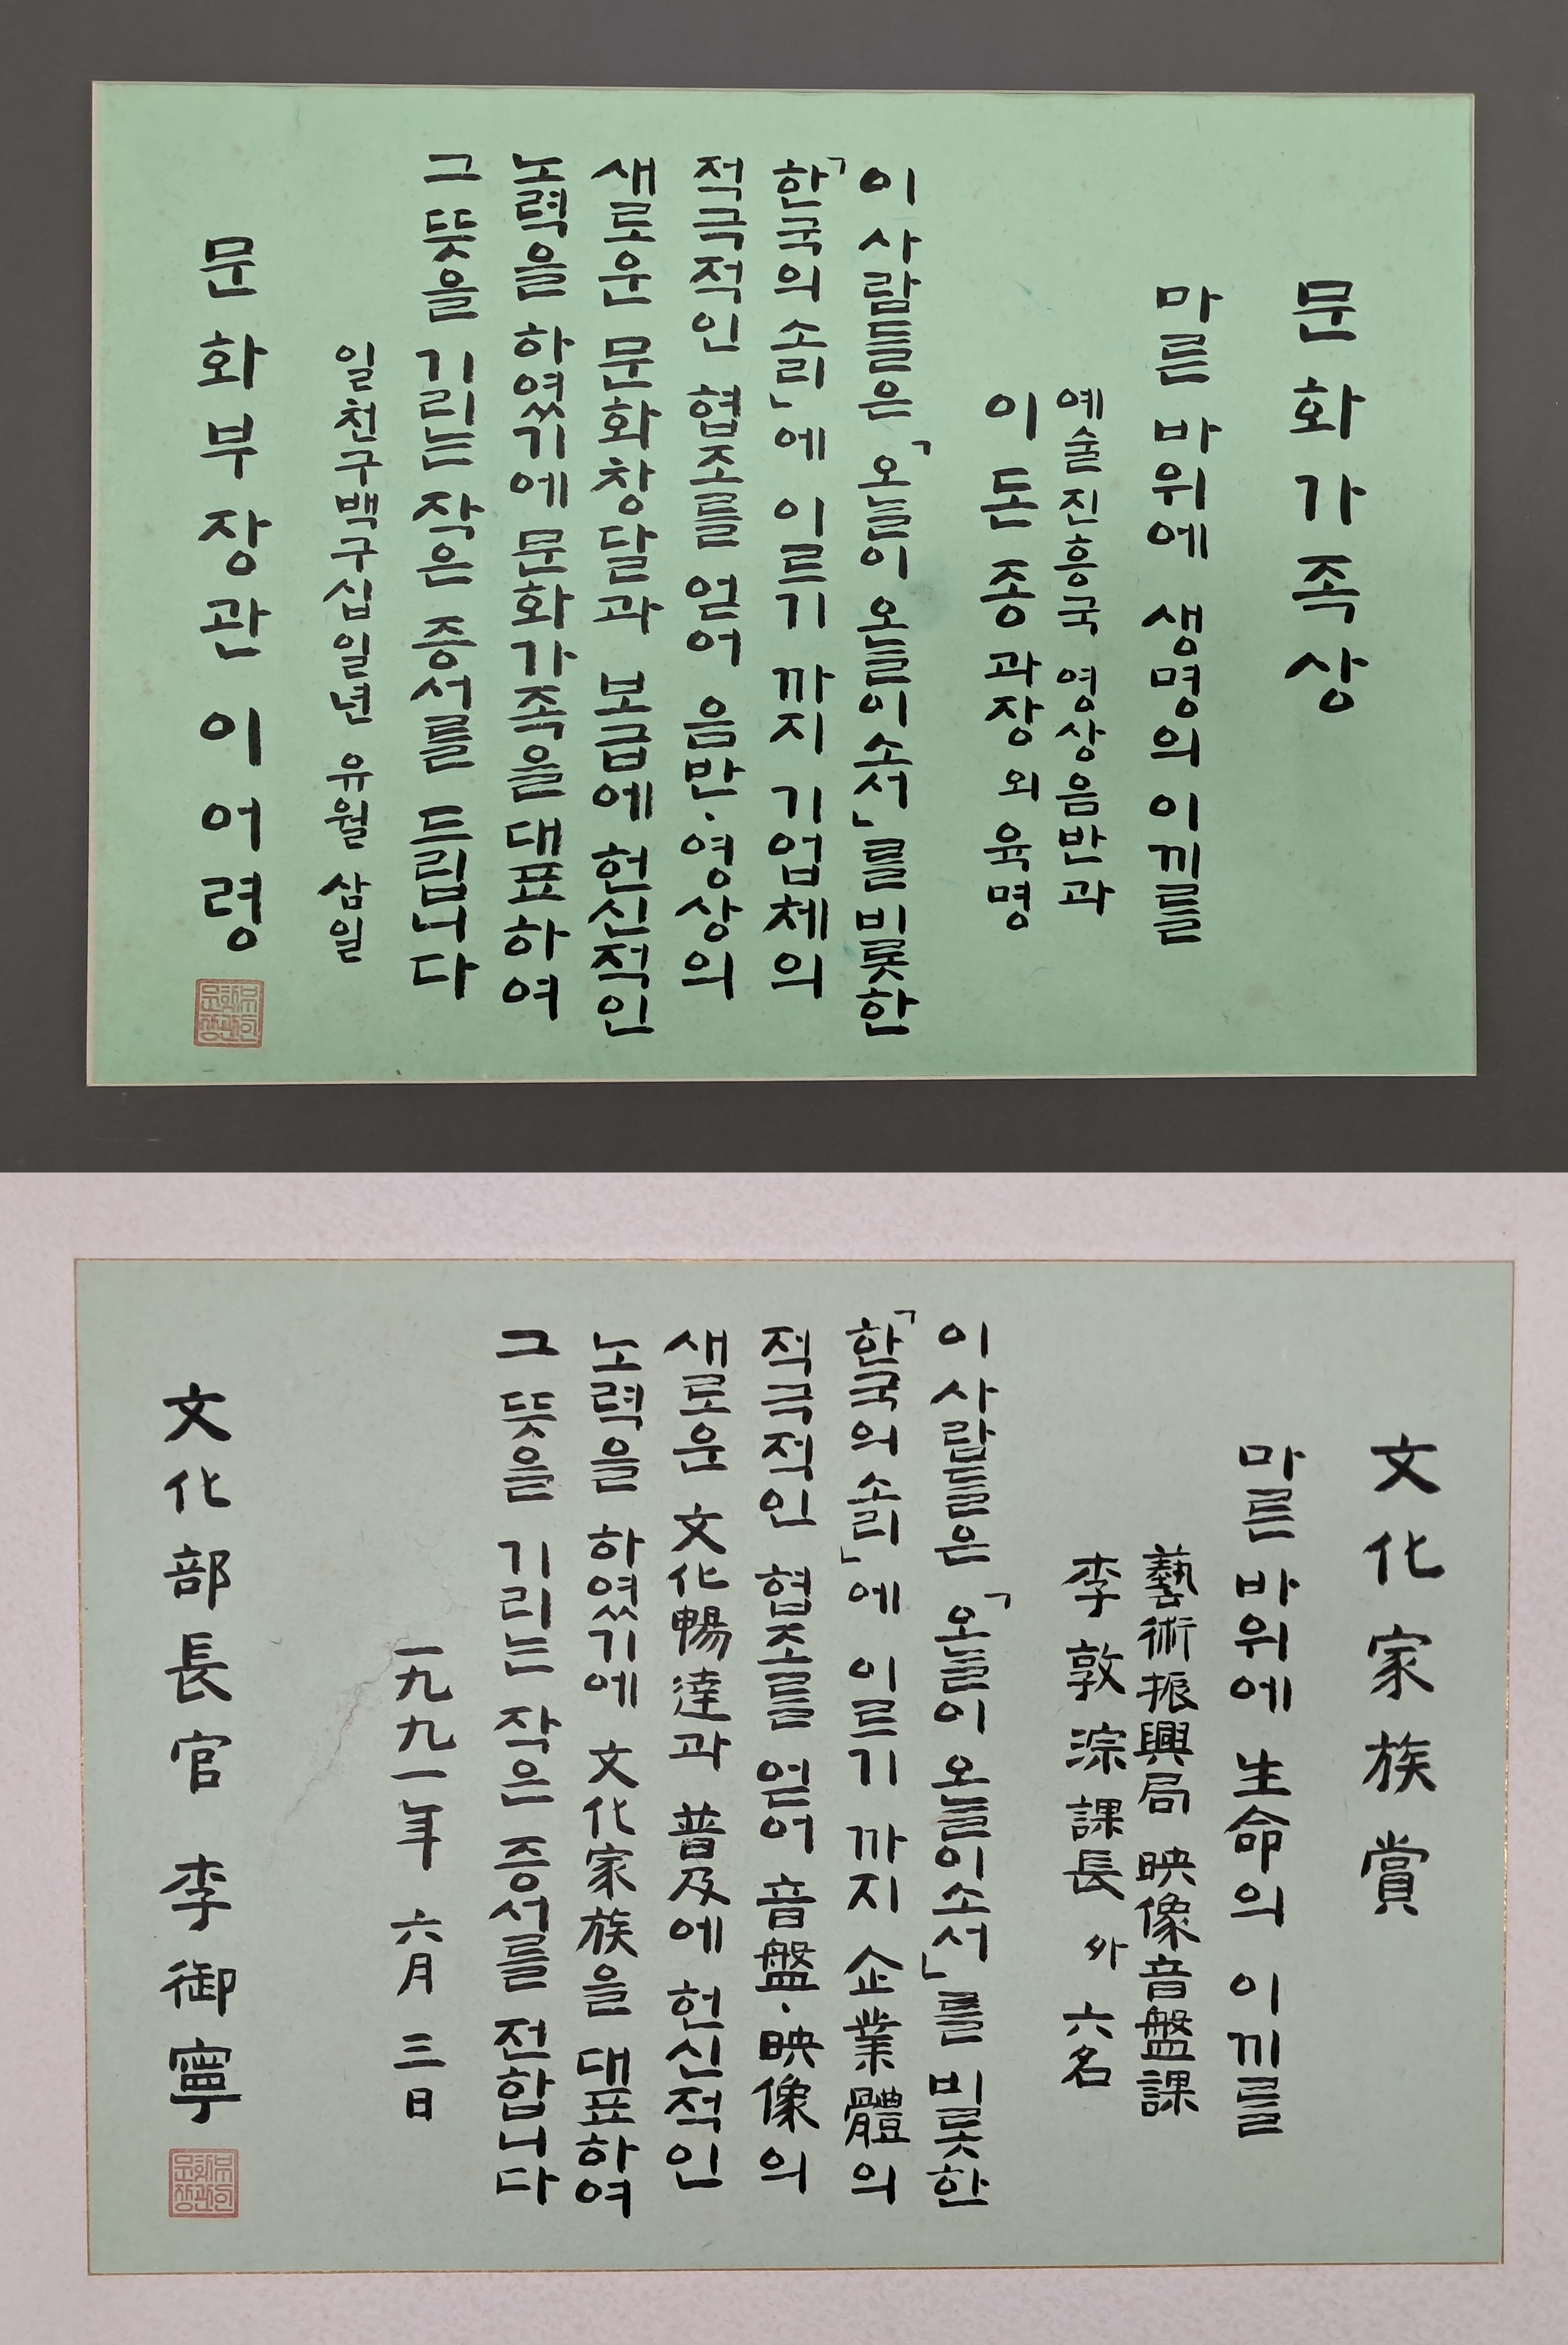 문화가족상
마른 바위에 생명의 이끼를
예술진흥국 영상음반과
이돈종 과장 외 육명
이 사람들은 「오늘이 오늘이소서」를 비롯한
「한국의 소리」에 이르기 까지 기업체의
적극적인 협조를 얻어 음반·영상의
새로운 문화창달과 보급에 헌신적인
노력을 하였기에 문화가족을 대표하여
그 뜻을 기리는 작은 증서를 드립니다
일천구백구십일년 유월 삼일
문화부장관 이어령
文化家族賞
마른 바위에 生命의 이끼를
藝術振興局 映像音盤課
李敦淙 課長 外 六名
이 사람들은 「오늘이 오늘이소서」를 비롯한
「한국의 소리」에 이르기 까지 企業體의
적극적인 협조를 얻어 音盤·映像의
새로운 文化暢達과 普及에 헌신적인
노력을 하였기에 文化家族을 대표하여
그 뜻을 기리는 작은 증서를 전합니다
一九九一年 六月 三日
文化部長官 李御寧